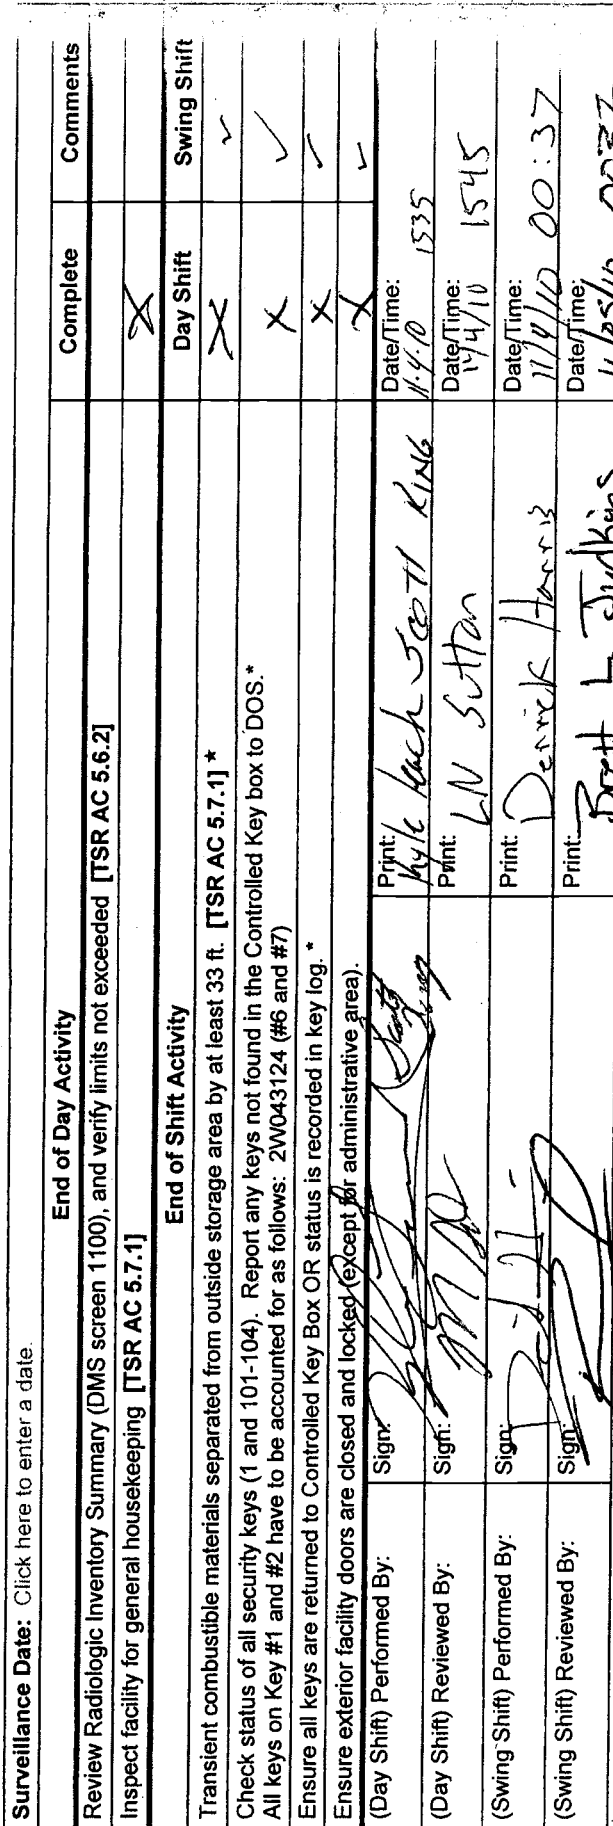 Surveillance Date: Click here to enter a date.
End of Day Activity Complete Comments
Review Radiologic Inventory Summary (DMS screen 1100), and verify limits not exceeded [TSR AC 5.6.2]
Inspect facility for general housekeeping [TSR AC 5.7.1] X
End of Shift Activity Day Shift Swing Shift
Transient combustible materials separated from outside storage area by at least 33 ft. [TSR AC 5.7.1] * X ✓
Check status of all security keys (1 and 101-104). Report any keys not found in the Controlled Key box to DOS.*
All keys on Key #1 and #2 have to be accounted for as follows: 2W043124 (#6 and #7) X ✓
Ensure all keys are returned to Controlled Key Box OR status is recorded in key log. * X ✓
Ensure exterior facility doors are closed and locked (except for administrative area). X ✓
(Day Shift) Performed By: Sign: Print: Kyle Leach Scott KING Date/Time: 11.4.10 1535
(Day Shift) Reviewed By: Sign: Print: LN Sutton Date/Time: 11/4/10 1545
(Swing Shift) Performed By: Sign: Print: Derrick Harris Date/Time: 11/4/10 00:37
(Swing Shift) Reviewed By: Sign: Print: Brett L Judkins Date/Time: 11/05/10